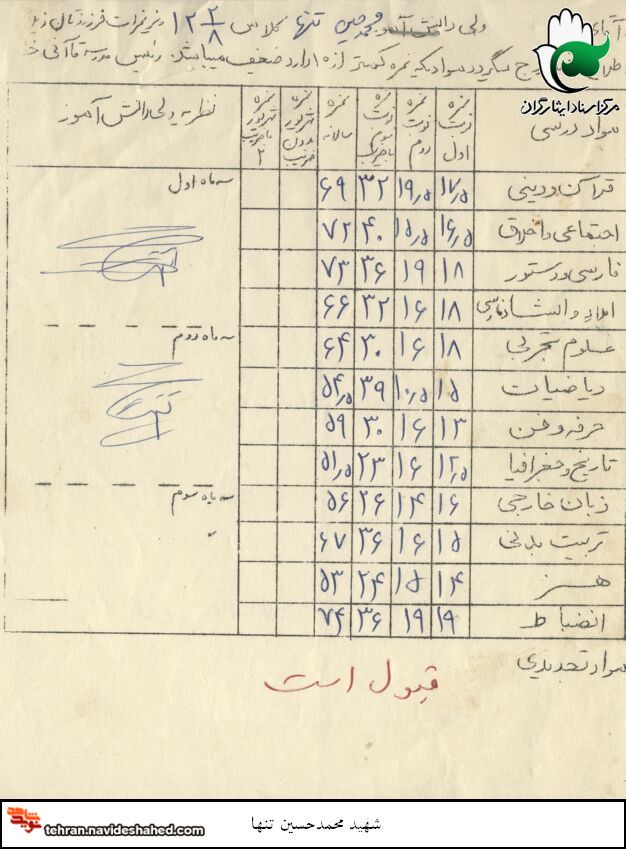 آقای ولی دانش آموز محمد حسین تنها کلاس ۲/۸ ۱۲ ریز نمرات فرزندتان زیلا
درج میگردد موادیکه نمره کمتر از ۱۰ دارد ضعیف میباشد. رئیس مدرسه قاآنی
مرکز اسناد ایثارگران
مواد درسی نمره نوبت اول نمره نوبت دوم نمره نوبت سوم با ضریب نمره سالانه نمره شهریور بدون ضریب نمره شهریور با ضریب ۲ نظریه ولی دانش آموز
قرآن و دینی ۱۷٫۵ ۱۹٫۵ ۳۲ ۶۹ سه ماه اول
اجتماعی و اخلاق ۱۶٫۵ ۱۵٫۵ ۴۰ ۷۲
فارسی و دستور ۱۸ ۱۹ ۳۶ ۷۳
املاء و انشاء فارسی ۱۸ ۱۶ ۳۲ ۶۶
علوم تجربی ۱۸ ۱۶ ۳۰ ۶۴ سه ماه دوم
ریاضیات ۱۵ ۱۰٫۵ ۳۹ ۵۴٫۵
حرفه و فن ۱۳ ۱۶ ۳۰ ۵۹
تاریخ و جغرافیا ۱۲٫۵ ۱۶ ۲۳ ۵۱٫۵
زبان خارجی ۱۶ ۱۴ ۲۶ ۵۶ سه ماه سوم
تربیت بدنی ۱۵ ۱۶ ۳۶ ۶۷
هنر ۱۴ ۱۵ ۲۴ ۵۳
انضباط ۱۹ ۱۹ ۳۶ ۷۴
مواد تجدیدی
قبول است
شهید محمدحسین تنها
نوید شاهد
tehran.navideshahed.com